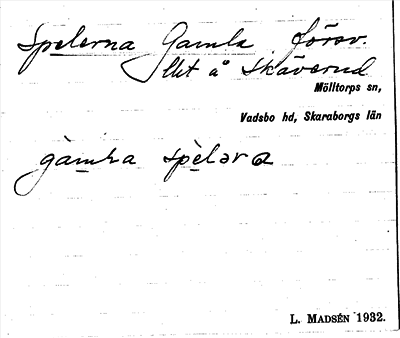 Spelerna Gamla försv.
slut å Skäverud
Mölltorps sn,
Vadsbo hd, Skaraborgs län
gàmla spèləra
L. MADSÉN 1932.